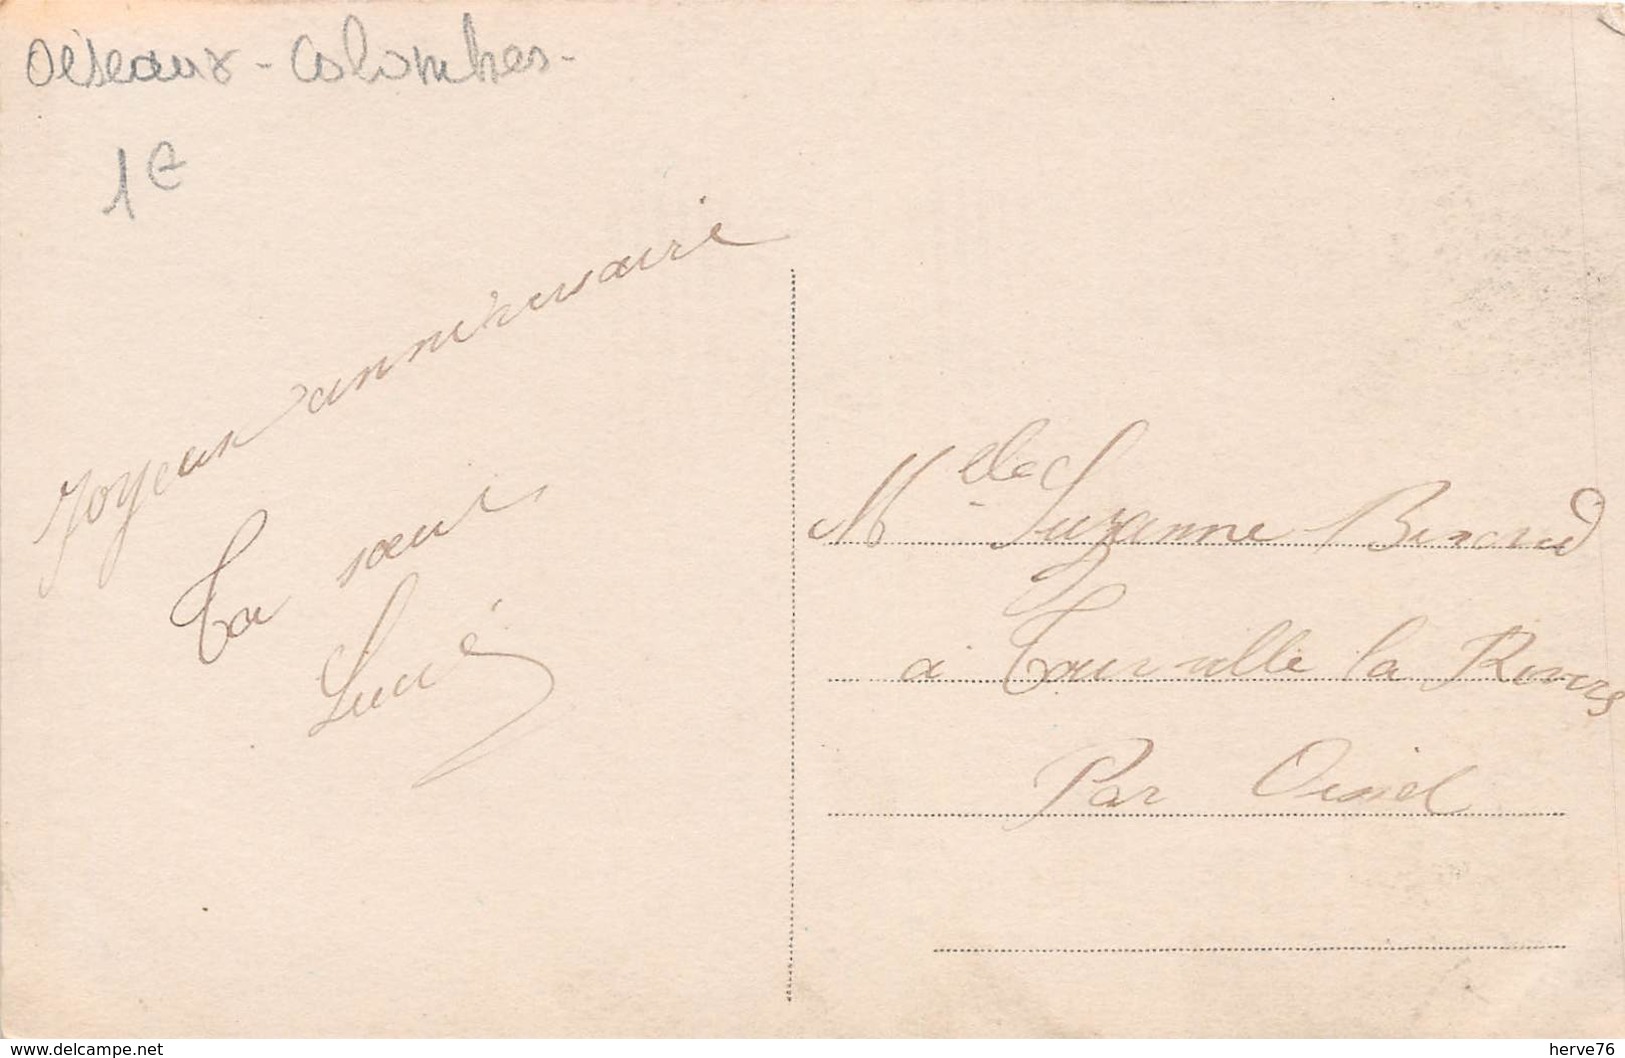 Oiseaux - Colombes -
1€
Joyeux anniversaire
Ta sœur
Lucie
Melle Suzanne
à Tourville la Rivière
Par Oissel
www.delcampe.net
herve76